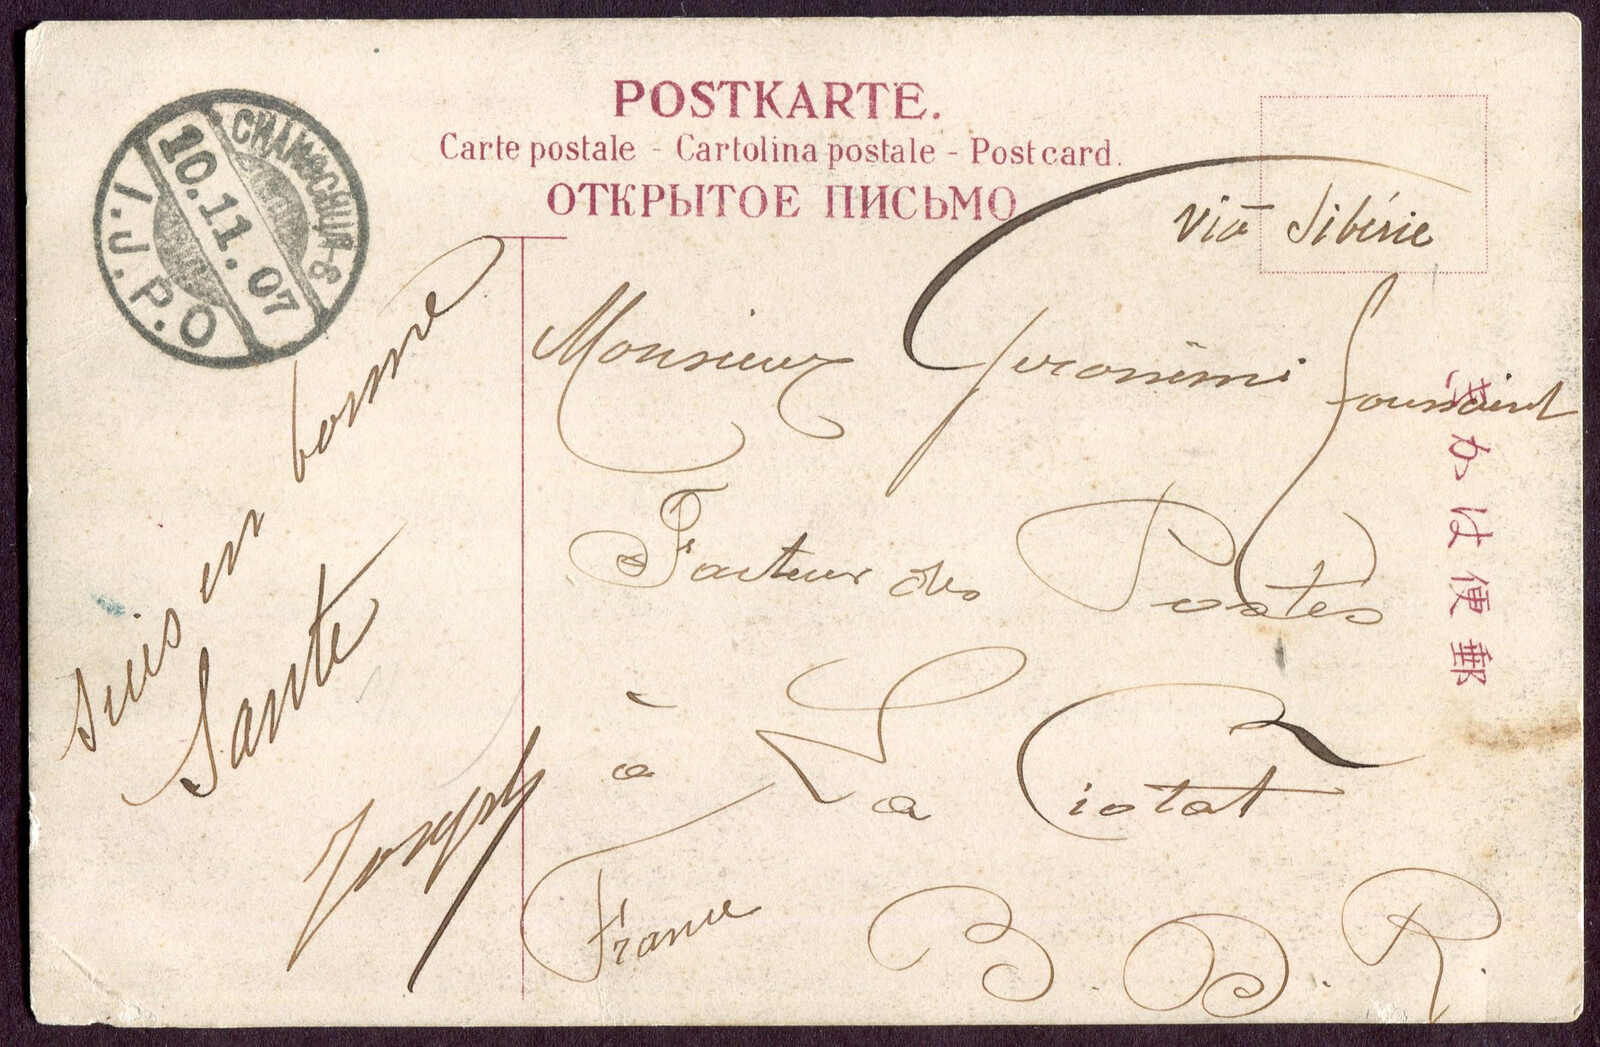 POSTKARTE.
Carte postale - Cartolina postale - Postcard.
ОТКРЫТОЕ ПИСЬМО
10.11.07
I.J.P.O
via Sibérie
Monsieur Geronimi Toussaint
Facteur des Postes
à La Ciotat
France B. D. R.
suis en bonne
Santé
Joseph
郵便はかき